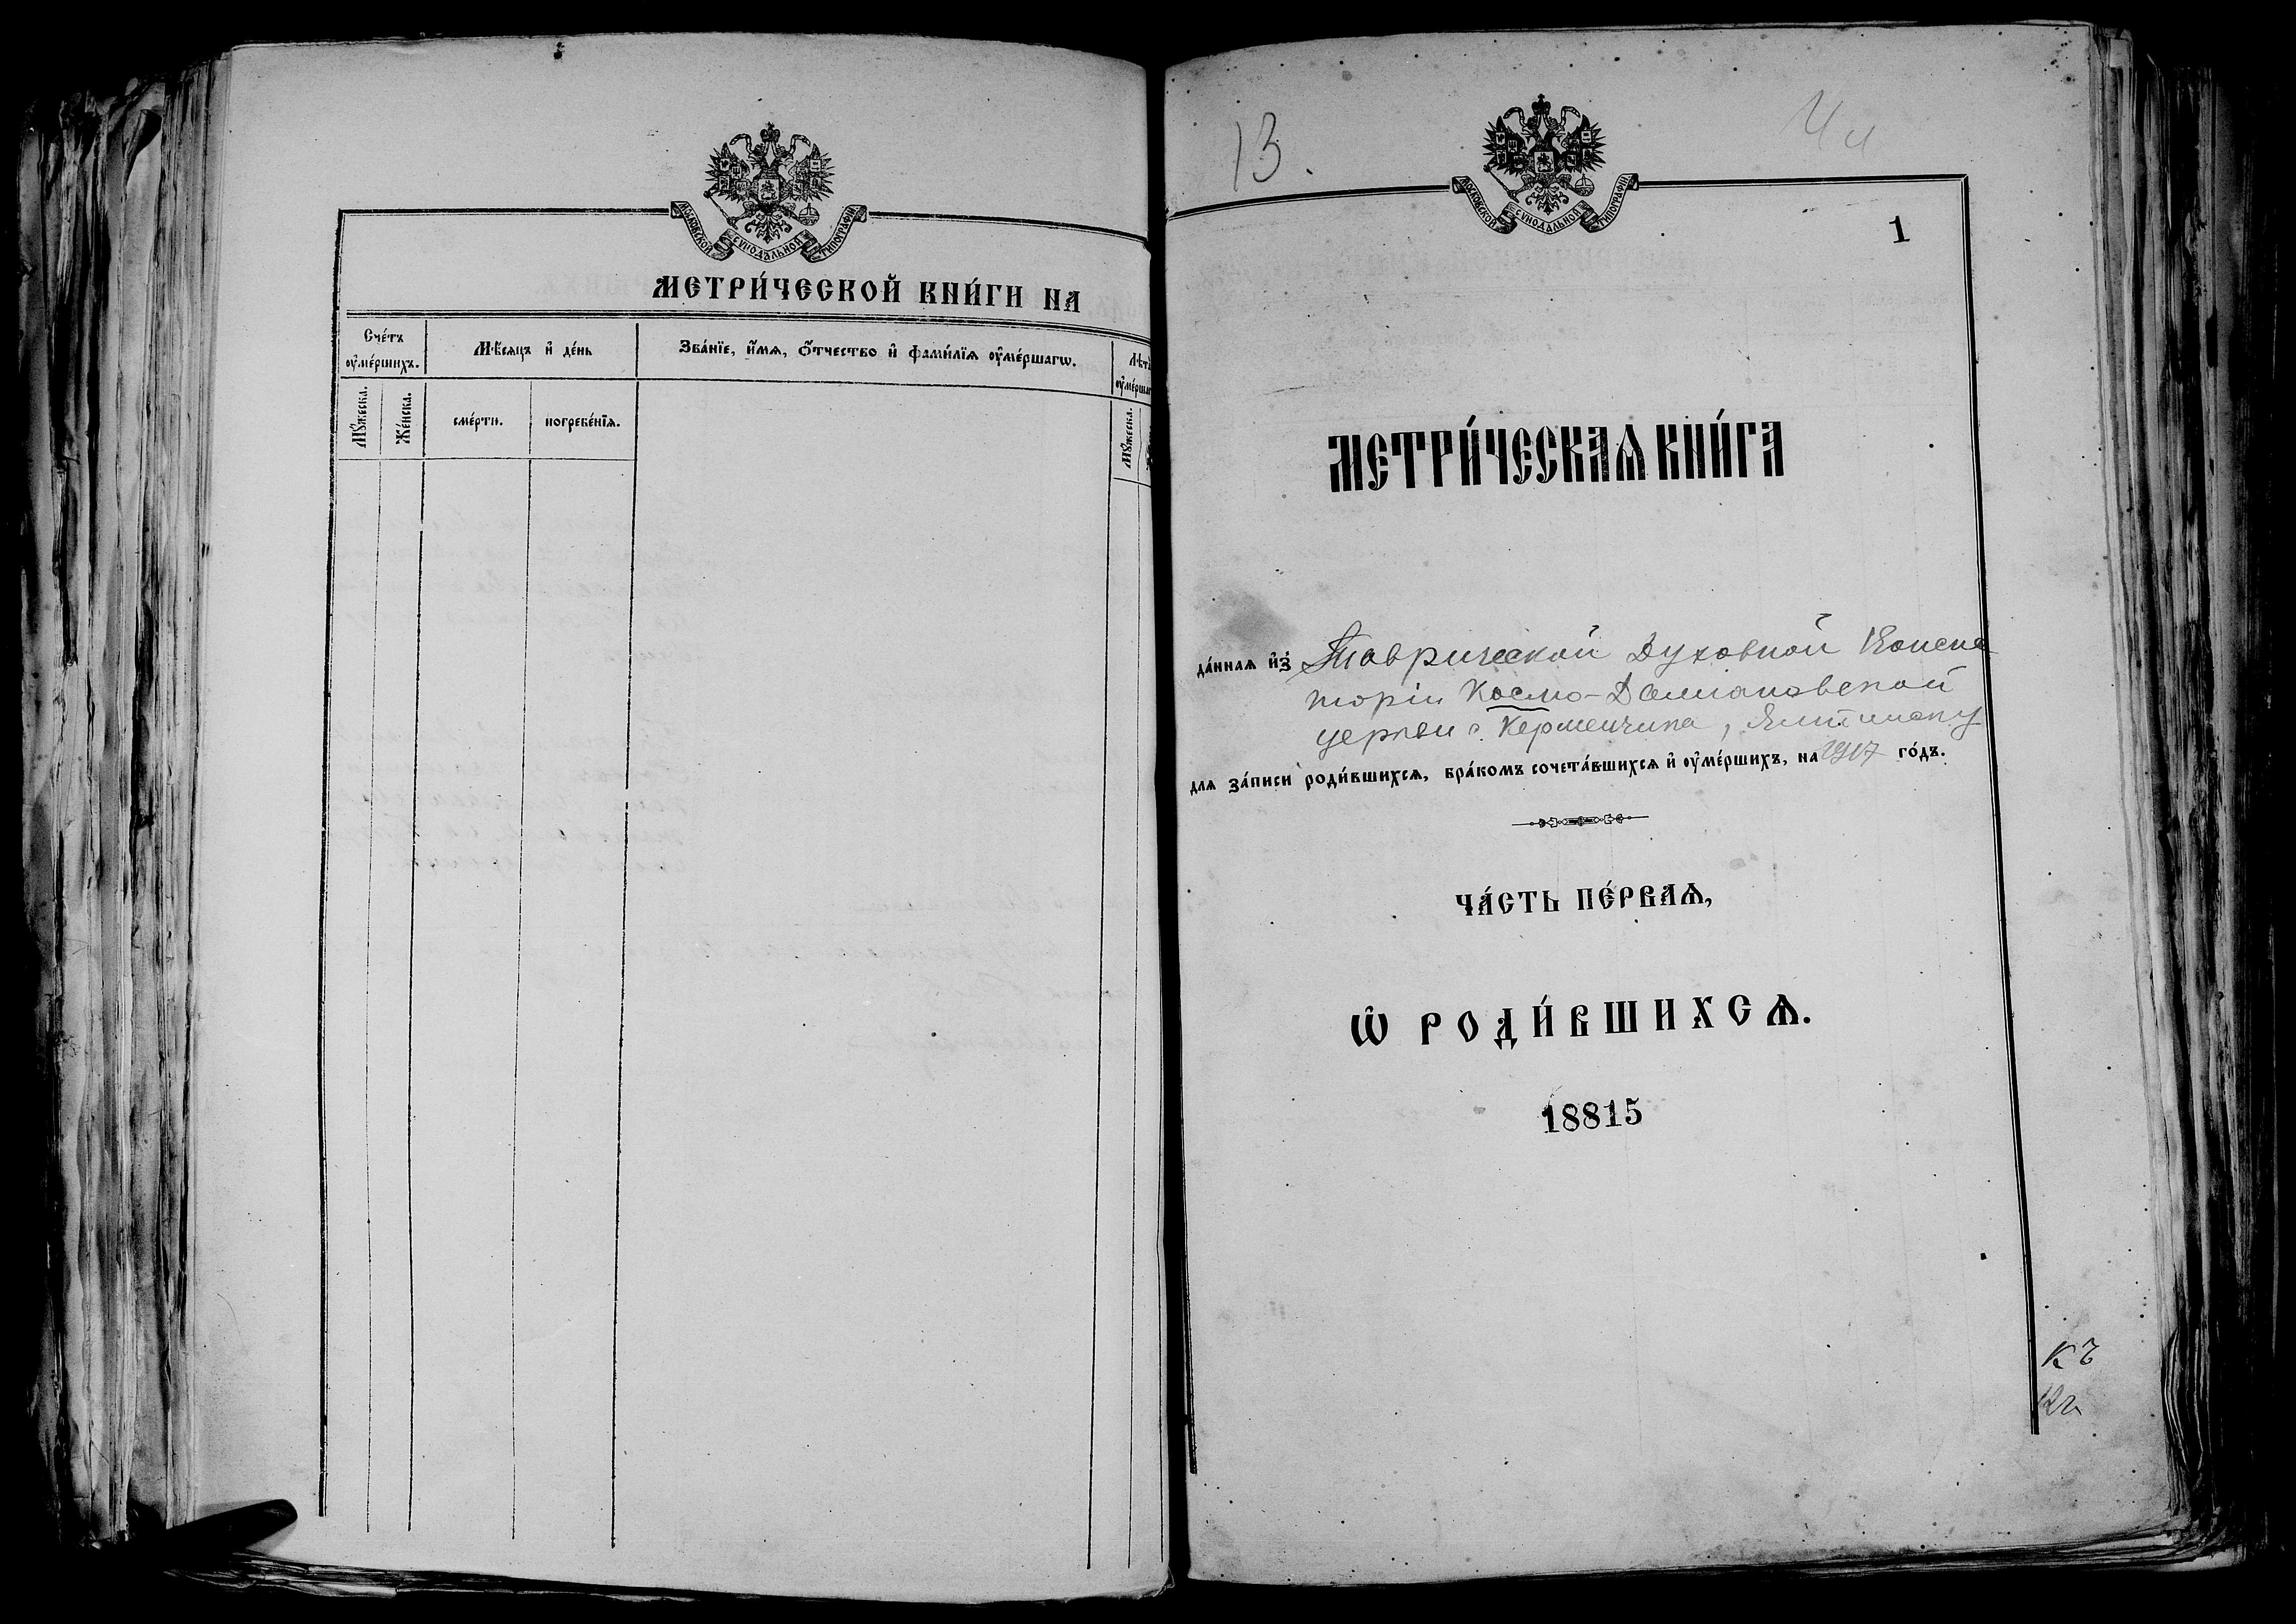 МОСКОВСКОЙ СѴНОДАЛЬНОЙ ТИПОГРАФІИ
МЕТРИ́ЧЕСКОЙ КНИ́ГИ НА
Сче́тъ оу҆ме́ршихъ.
Мѣ́сяцъ и҆ де́нь
Зва́нїе, и҆́мѧ, ѻ҆́тчество и҆ фами́лїѧ оу҆ме́ршагѡ.
Мꙋ́жеска.
Же́нска.
сме́рти.
погребе́нїѧ.
Мꙋ́жеска.
13.
МОСКОВСКОЙ СѴНОДАЛЬНОЙ ТИПОГРАФІИ
1
МЕТРИ́ЧЕСКАѦ КНИ́ГА
да́ннаѧ и҆з̾ Таврической Духовной Консис
торіи Космо-Даміановской
церкви с. Керменчика,
для за́писи роди́вшихсѧ, бра́комъ сочета́вшихсѧ и҆ оу҆ме́ршихъ, на 1917 го́дъ.
ЧА́СТЬ ПЕ́РВАѦ,
Ѡ҆ РОДИ́ВШИХСѦ.
18815